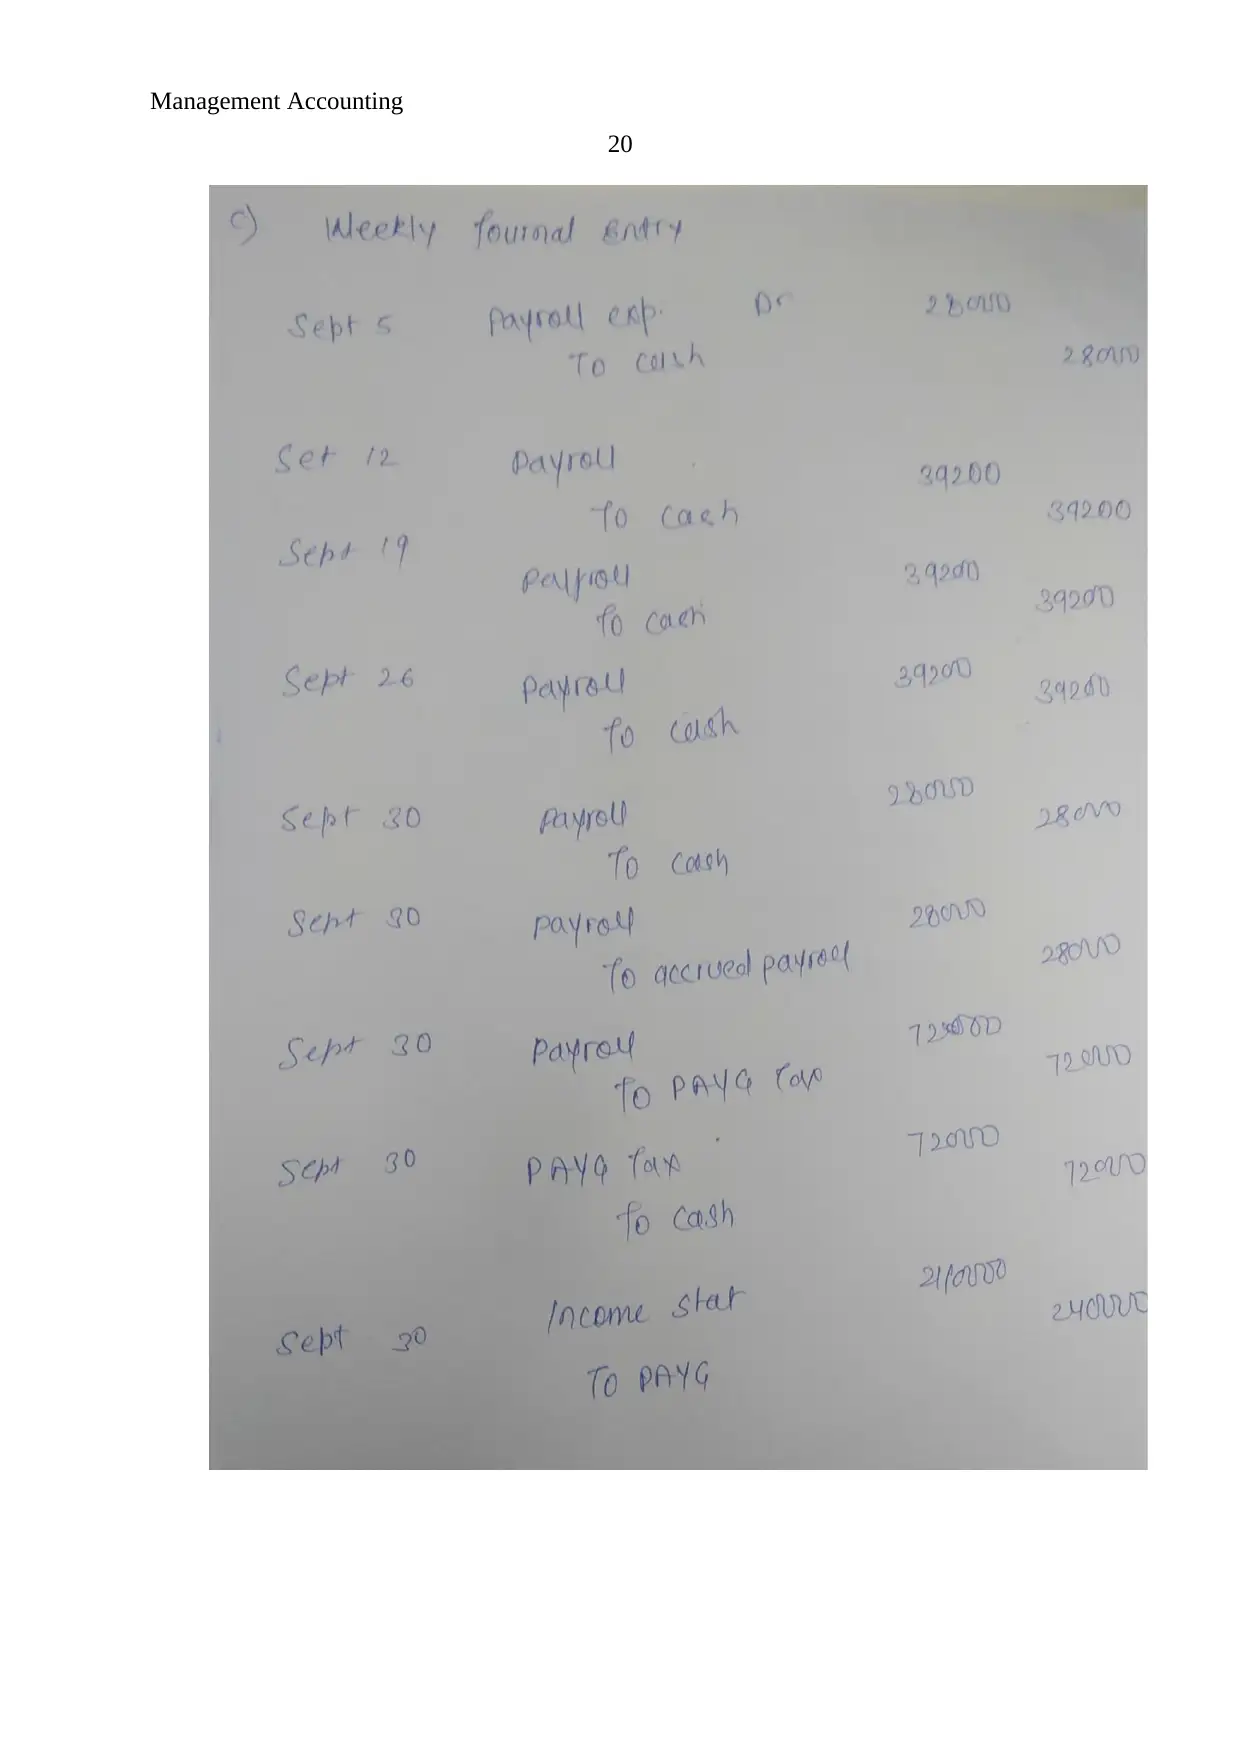 Management Accounting
20
c) Weekly Journal Entry
Sept 5 Payroll exp. Dr 28000
To cash 28000
Set 12 Payroll 39200
To cash 39200
Sept 19
Payroll 39200
To cash 39200
Sept 26 Payroll 39200
To cash 39200
Sept 30 Payroll 28000
To cash 28000
Sept 30 Payroll 28000
To accrued payroll 28000
Sept 30 Payroll
To PAYG Tax 72000
Sept 30 PAYG Tax 72000
To cash 72000
Sept 30 Income stat
To PAYG 240000